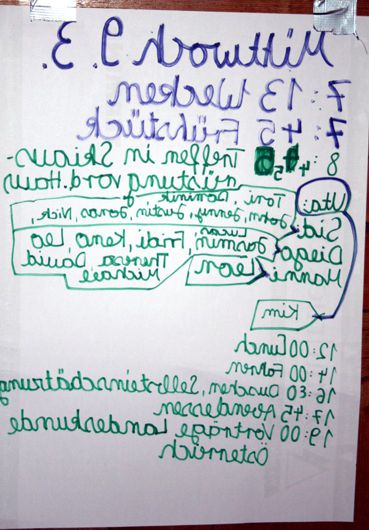 Mittwoch 9.3.
7:13 Wecken
7:45 Frühstück
8:45 Treffen in Skiaus-
rüstung vord. Haus
Uta: Toni, Dominik
Sid: John, Jenny, Justin, Jonas, Nick,
Lucas
Diego Jasmin, Fridi, Keno, Leo
Manni Leon Theresa David
Michael
Kim
12:00 Lunch
14:00 Fahren
16:30 Duschen, Selbsteinschätzung
17:45 Abendessen
19:00 Vorträge Landeskunde
Österreich